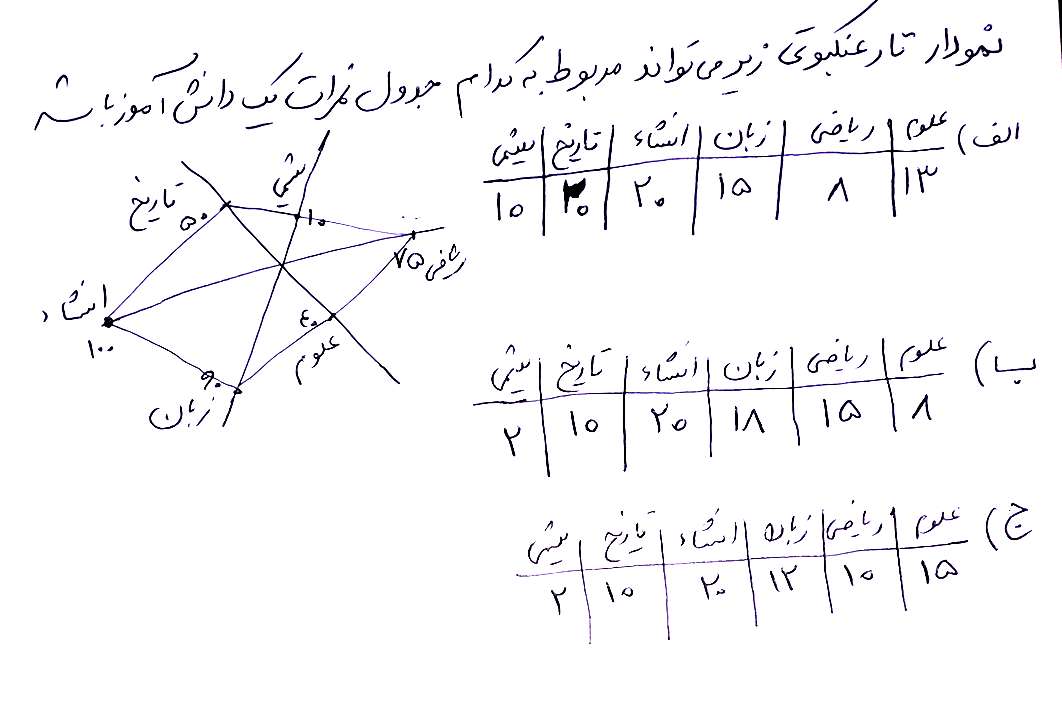 نمودار تار عنکبوتی زیر می‌تواند مربوط به کدام جدول نمرات یک دانش آموز باشد
الف) علوم | ریاضی | زبان | انشاء | تاریخ | شیمی
۱۳ | ۸ | ۱۵ | ۲۰ | ۲۰ | ۱۰
شیمی
۱۰
تاریخ
۵۰
ریاضی ۷۵
انشاء
۱۰۰
۴۰
علوم
۹۰
زبان
ب) علوم | ریاضی | زبان | انشاء | تاریخ | شیمی
۸ | ۱۵ | ۱۸ | ۲۰ | ۱۰ | ۲
ج) علوم | ریاضی | زبان | انشاء | تاریخ | شیمی
۱۵ | ۱۰ | ۱۲ | ۲۰ | ۱۰ | ۲